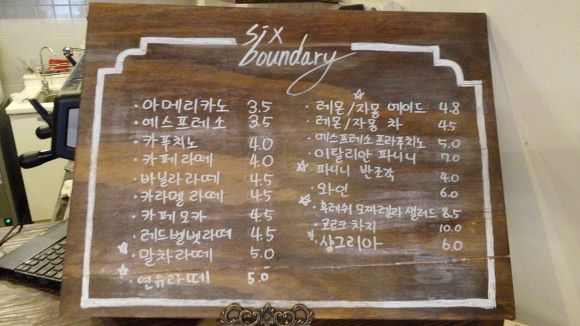 six
boundary
· 아메리카노 3.5
· 에스프레소 3.5
· 카푸치노 4.0
· 카페라떼 4.0
· 바닐라라떼 4.5
· 카라멜라떼 4.5
· 카페모카 4.5
· 레드벨벳라떼 4.5
☆ 말차라떼 5.0
☆ 연유라떼 5.0
· 레몬/자몽 에이드 4.8
· 레몬/자몽 차 4.5
· 에스프레소 프라푸치노 5.0
· 이탈리안 파니니 7.0
☆ 파니니 반조각 4.0
· 와인 6.0
· 후레쉬 모짜렐라 샐러드 8.5
· 코르크 차지 10.0
☆ 샹그리아 6.0